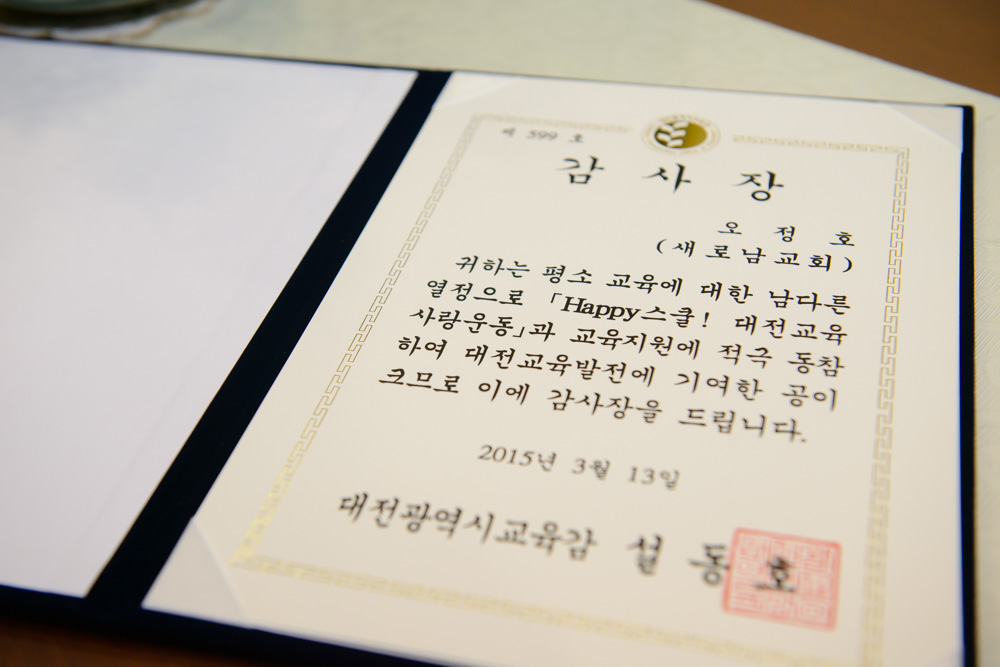 제 599 호
감 사 장
오 정 호
(새로남교회)
귀하는 평소 교육에 대한 남다른
열정으로 「Happy스쿨! 대전교육
사랑운동」과 교육지원에 적극 동참
하여 대전교육발전에 기여한 공이
크므로 이에 감사장을 드립니다.
2015년 3월 13일
대전광역시교육감 설 동 호